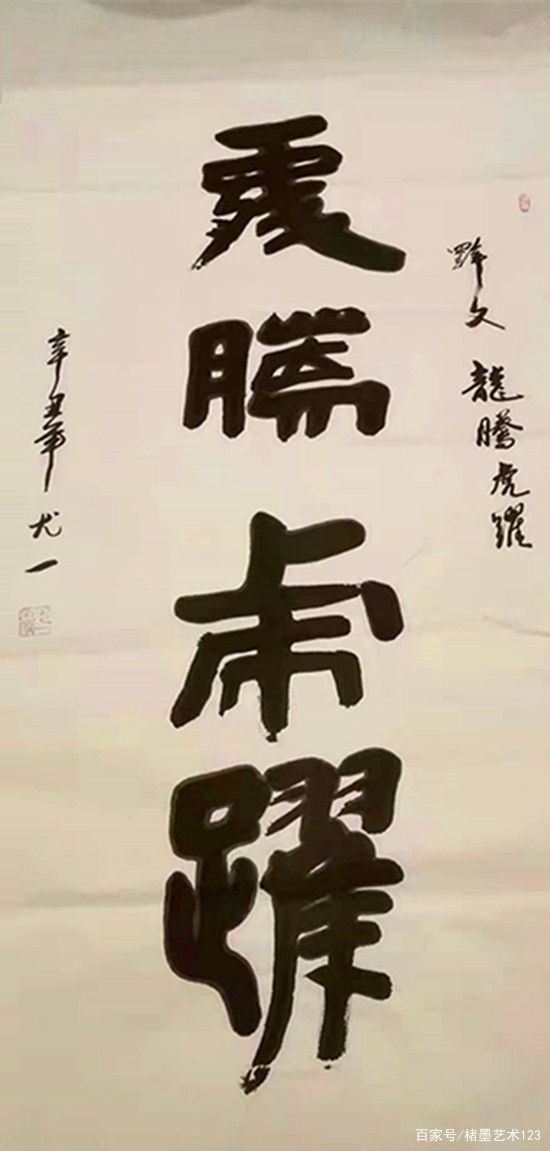 釋文 龍騰虎躍
龍騰虎躍
辛丑年 尤一
百家号/楮墨艺术123